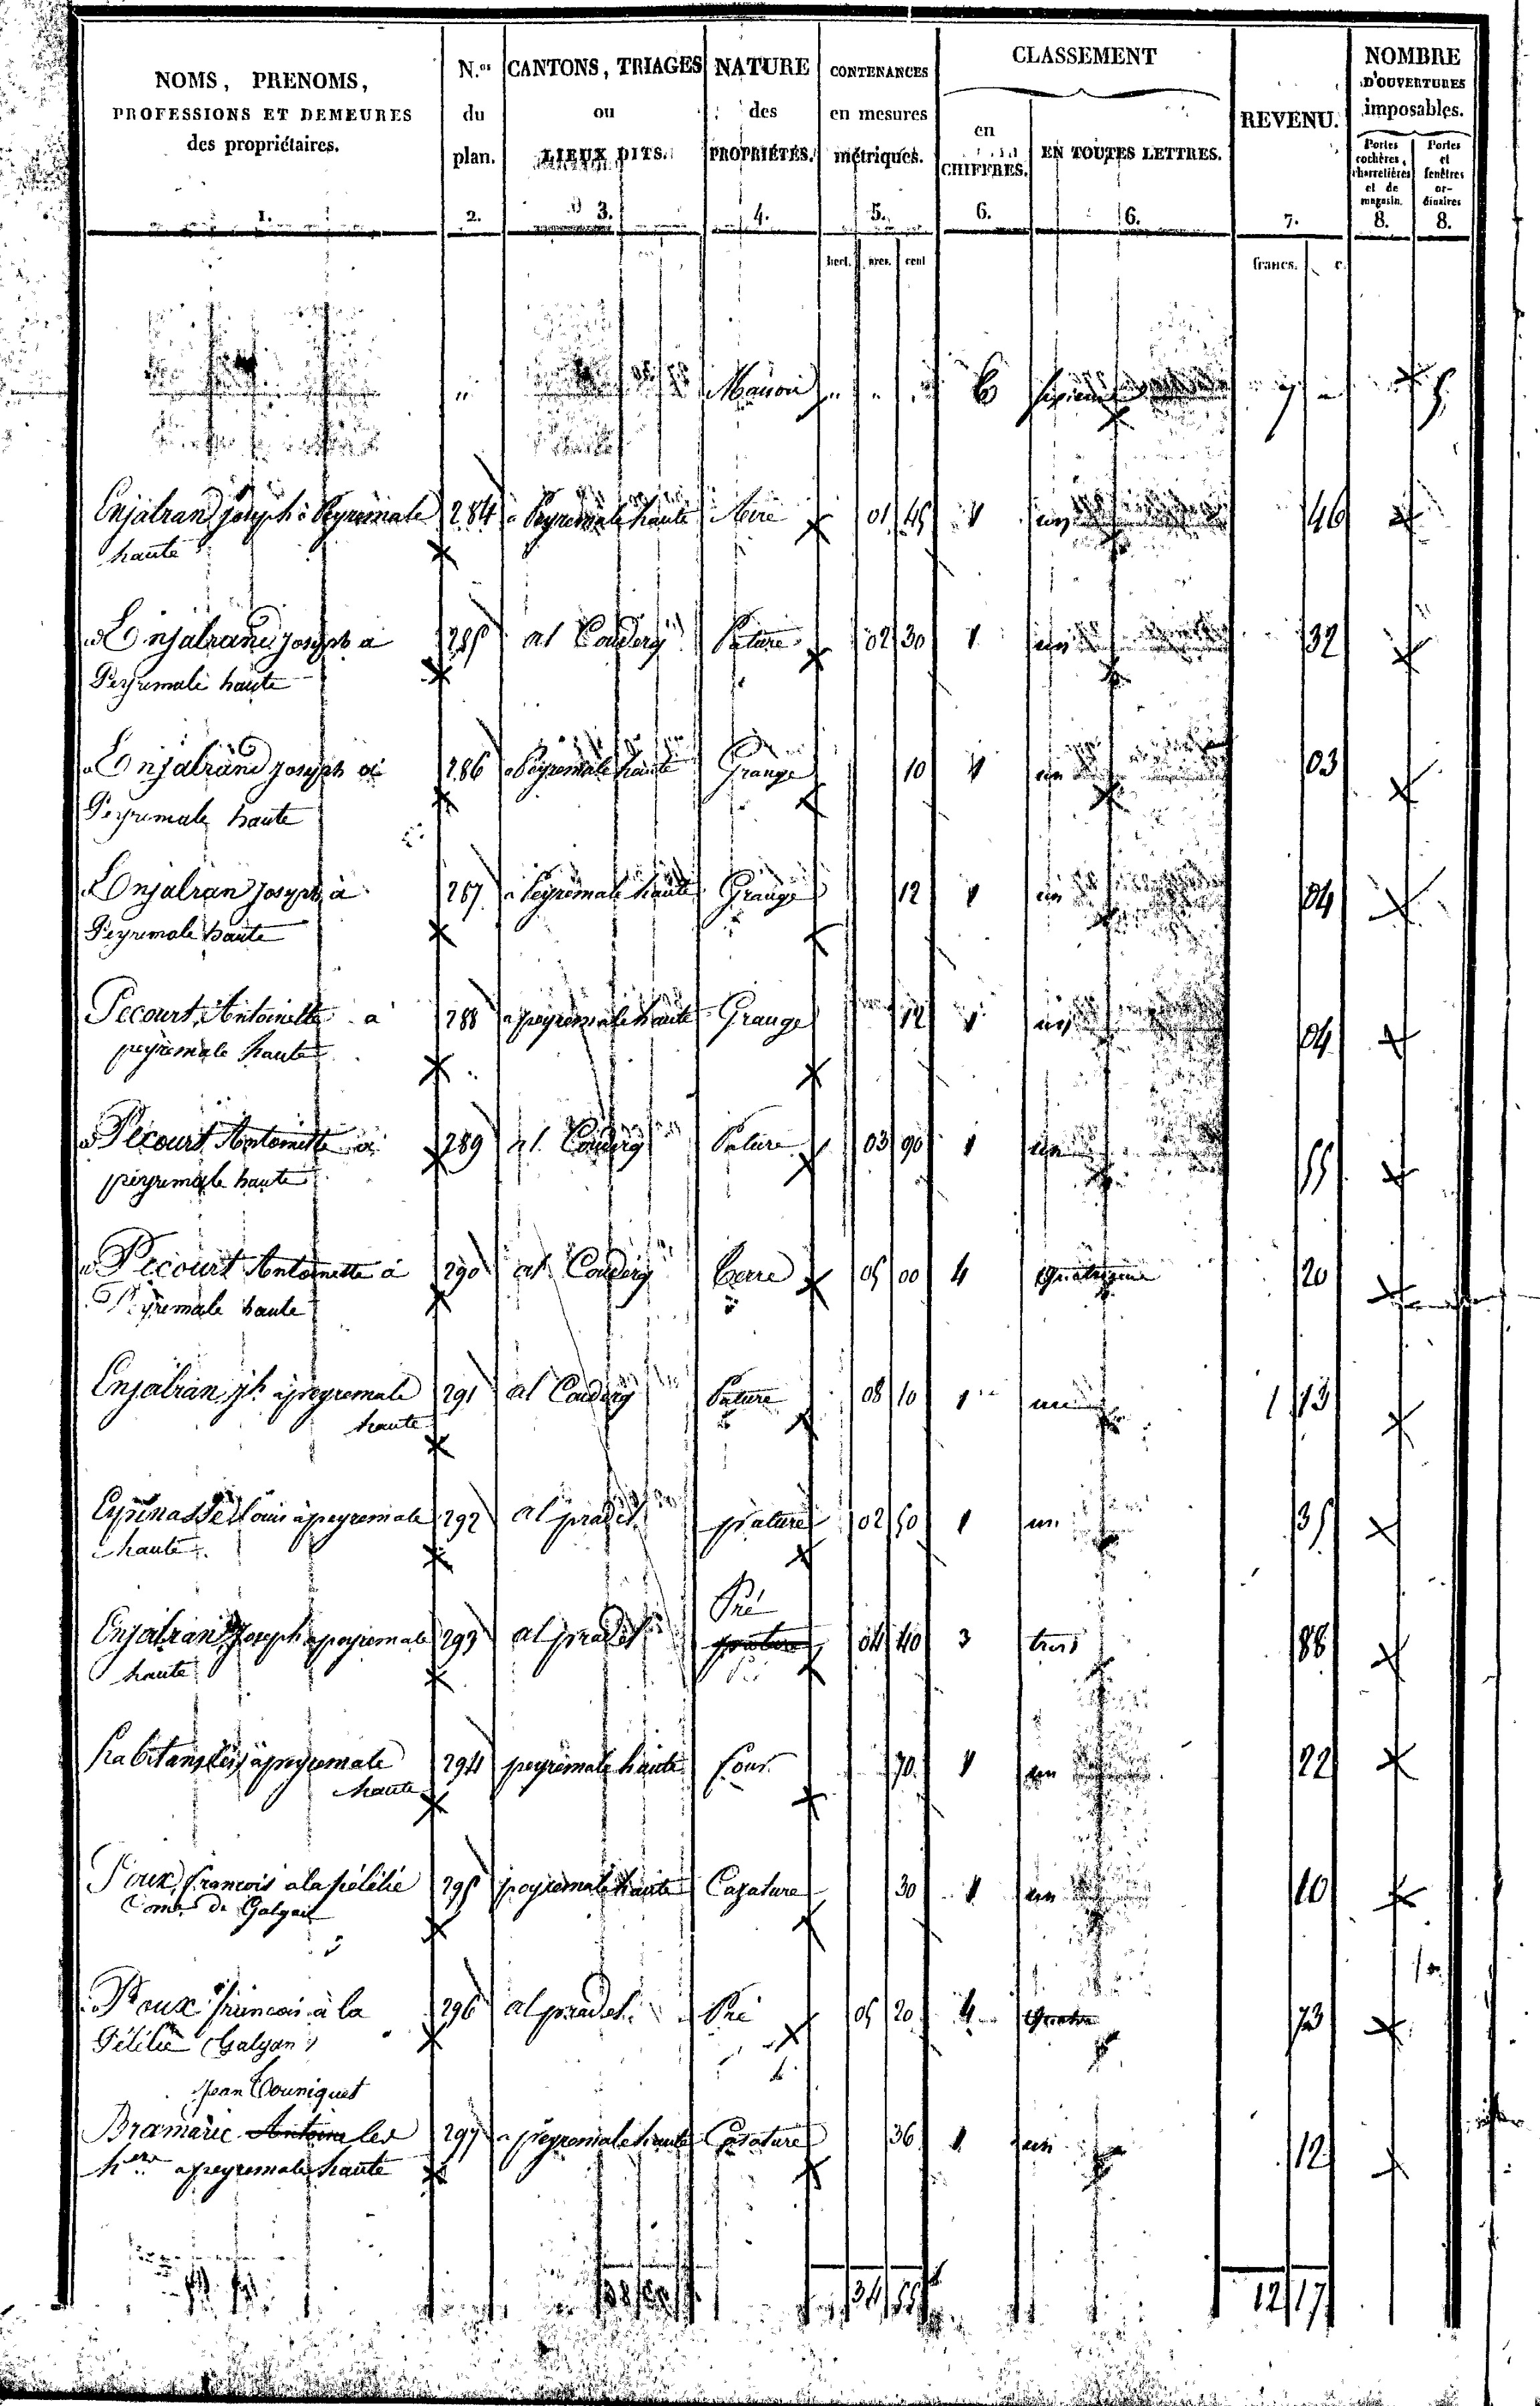 NOMS, PRENOMS, PROFESSIONS ET DEMEURES des propriétaires. 1.
N.os du plan. 2.
CANTONS, TRIAGES ou LIEUX DITS. 3.
NATURE des PROPRIÉTÉS. 4.
CONTENANCES en mesures métriques. 5.
CLASSEMENT
en CHIFFRES. 6.
EN TOUTES LETTRES. 6.
REVENU. 7.
NOMBRE D'OUVERTURES imposables.
Portes cochères, charretières et de magasin. 8.
Portes et fenêtres ordinaires 8.
hect. ares. cent francs. c.
" Maison " " " 6 7 "
Enjalran joseph à Peyremale 284 à Peyremale haute Aire 01 45 1 un 46
haute
Enjalran joseph a 285 al Couderg Pature 02 30 1 un 32
Peyremale haute
Enjalran joseph a 286 a Peyremale haute Grange 10 1 un 03
Peyremale haute
Enjalran joseph à 287 a Peyremale haute Grange 12 1 un 04
Peyremale haute
Pecourt Antoinette a 288 a peyremale haute Grange 12 1 un 04
peyremale haute
Pecourt Antoinette a 289 al Couderg Pature 03 90 1 un 55
peyremale haute
Pecourt Antoinette à 290 al Couderg terre 05 00 4 quatrieme 20
Peyremale haute
Enjalran jh à peyremale 291 al Couderg Pature 08 10 1 un 1 13
haute
Espinasse Louis à peyremale 292 al pradel pature 02 50 1 un 35
haute
Pré
Enjalran Joseph a peyremale 293 al pradel pature 04 40 3 trois 88
haute
habitans les à peyremale 294 peyremale haute four 70 1 un 22
haute
Roux francois a la pélélié 295 peyremale haute Casature 30 1 un 10
Comne de Galgan
Roux francois à la 296 al pradel Pré 05 20 4 Quatre 73
Pélélié (Galgan)
Jean Touniquet
Bramarie Antoine les 297 a peyremale haute Casature 36 1 un 12
hers a peyremale haute
12 17